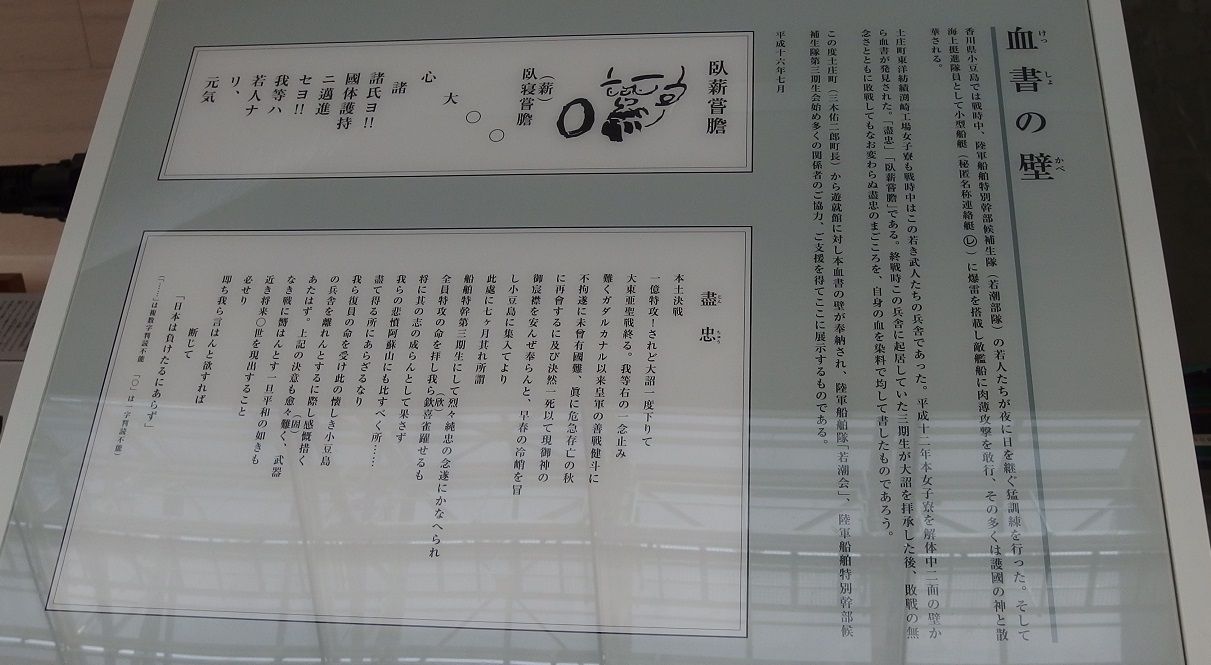 血書の壁
けっしょ
かべ
香川県小豆島では戦時中、陸軍船舶特別幹部候補生隊（若潮部隊）の若人たちが夜に日を継ぐ猛訓練を行った。そして
海上挺進隊員として小型船艇（秘匿名称連絡艇㋹）に爆雷を搭載し敵艦船に肉薄攻撃を敢行、その多くは護國の神と散
華される。
土庄町東洋紡績渕崎工場女子寮も戦時中はこの若き武人たちの兵舎であった。平成十二年本女子寮を解体中二面の壁か
ら血書が発見された。「盡忠」「臥薪嘗膽」である。終戦時この兵舎に起居していた三期生が大詔を拝承した後、敗戦の無
念さとともに敗戦してもなお変わらぬ盡忠のまごころを、自身の血を染料で均して書したものであろう。
この度土庄町（三木佑二郎町長）から遊就館に対し本血書の壁が奉納され、陸軍船舶隊「若潮会」、陸軍船舶特別幹部候
補生隊第三期生会始め多くの関係者のご協力、ご支援を得てここに展示するものである。
平成十六年七月
臥薪嘗膽
（薪）
臥寝嘗膽
〇
〇
大
諸
心
諸氏ヨ!!
國体護持
ニ邁進
セヨ!!
我等ハ
若人ナ
リ、
元気
盡忠
じんちゅう
本土決戦
一億特攻！されど大詔一度下りて
大東亜聖戦終る。我等右の一念止み
難くガダルカナル以来皇軍の善戦健斗に
不拘遂に未曾有國難、眞に危急存亡の秋
に再會するに及び決然一死以て現御神の
御宸襟を安んぜ奉らんと、早春の冷峭を冒
し小豆島に集入てより
此處に七ヶ月其れ所謂
船舶特幹第三期生にして烈々純忠の念遂にかなへられ
全員特攻の命を拝し我ら欽喜雀躍せるも
（欣）
将に其の志の成らんとして果さず
我らの悲憤阿蘇山にも比すべく所……
盡て得る所にあらざるなり
我ら復員の命を受け此の懐しき小豆島
の兵舎を離れんとするに際し感慨措く
あたはず。上記の決意も愈々難く、武器
（固）
なき戦に讐はんとす一旦平和の如きも
近き将来〇世を現出すること
必せり
即ち我ら言はんと欲すれば
断じて
「日本は負けたるにあらず」
（「……」は複数字判読不能　「〇」は一字判読不能）